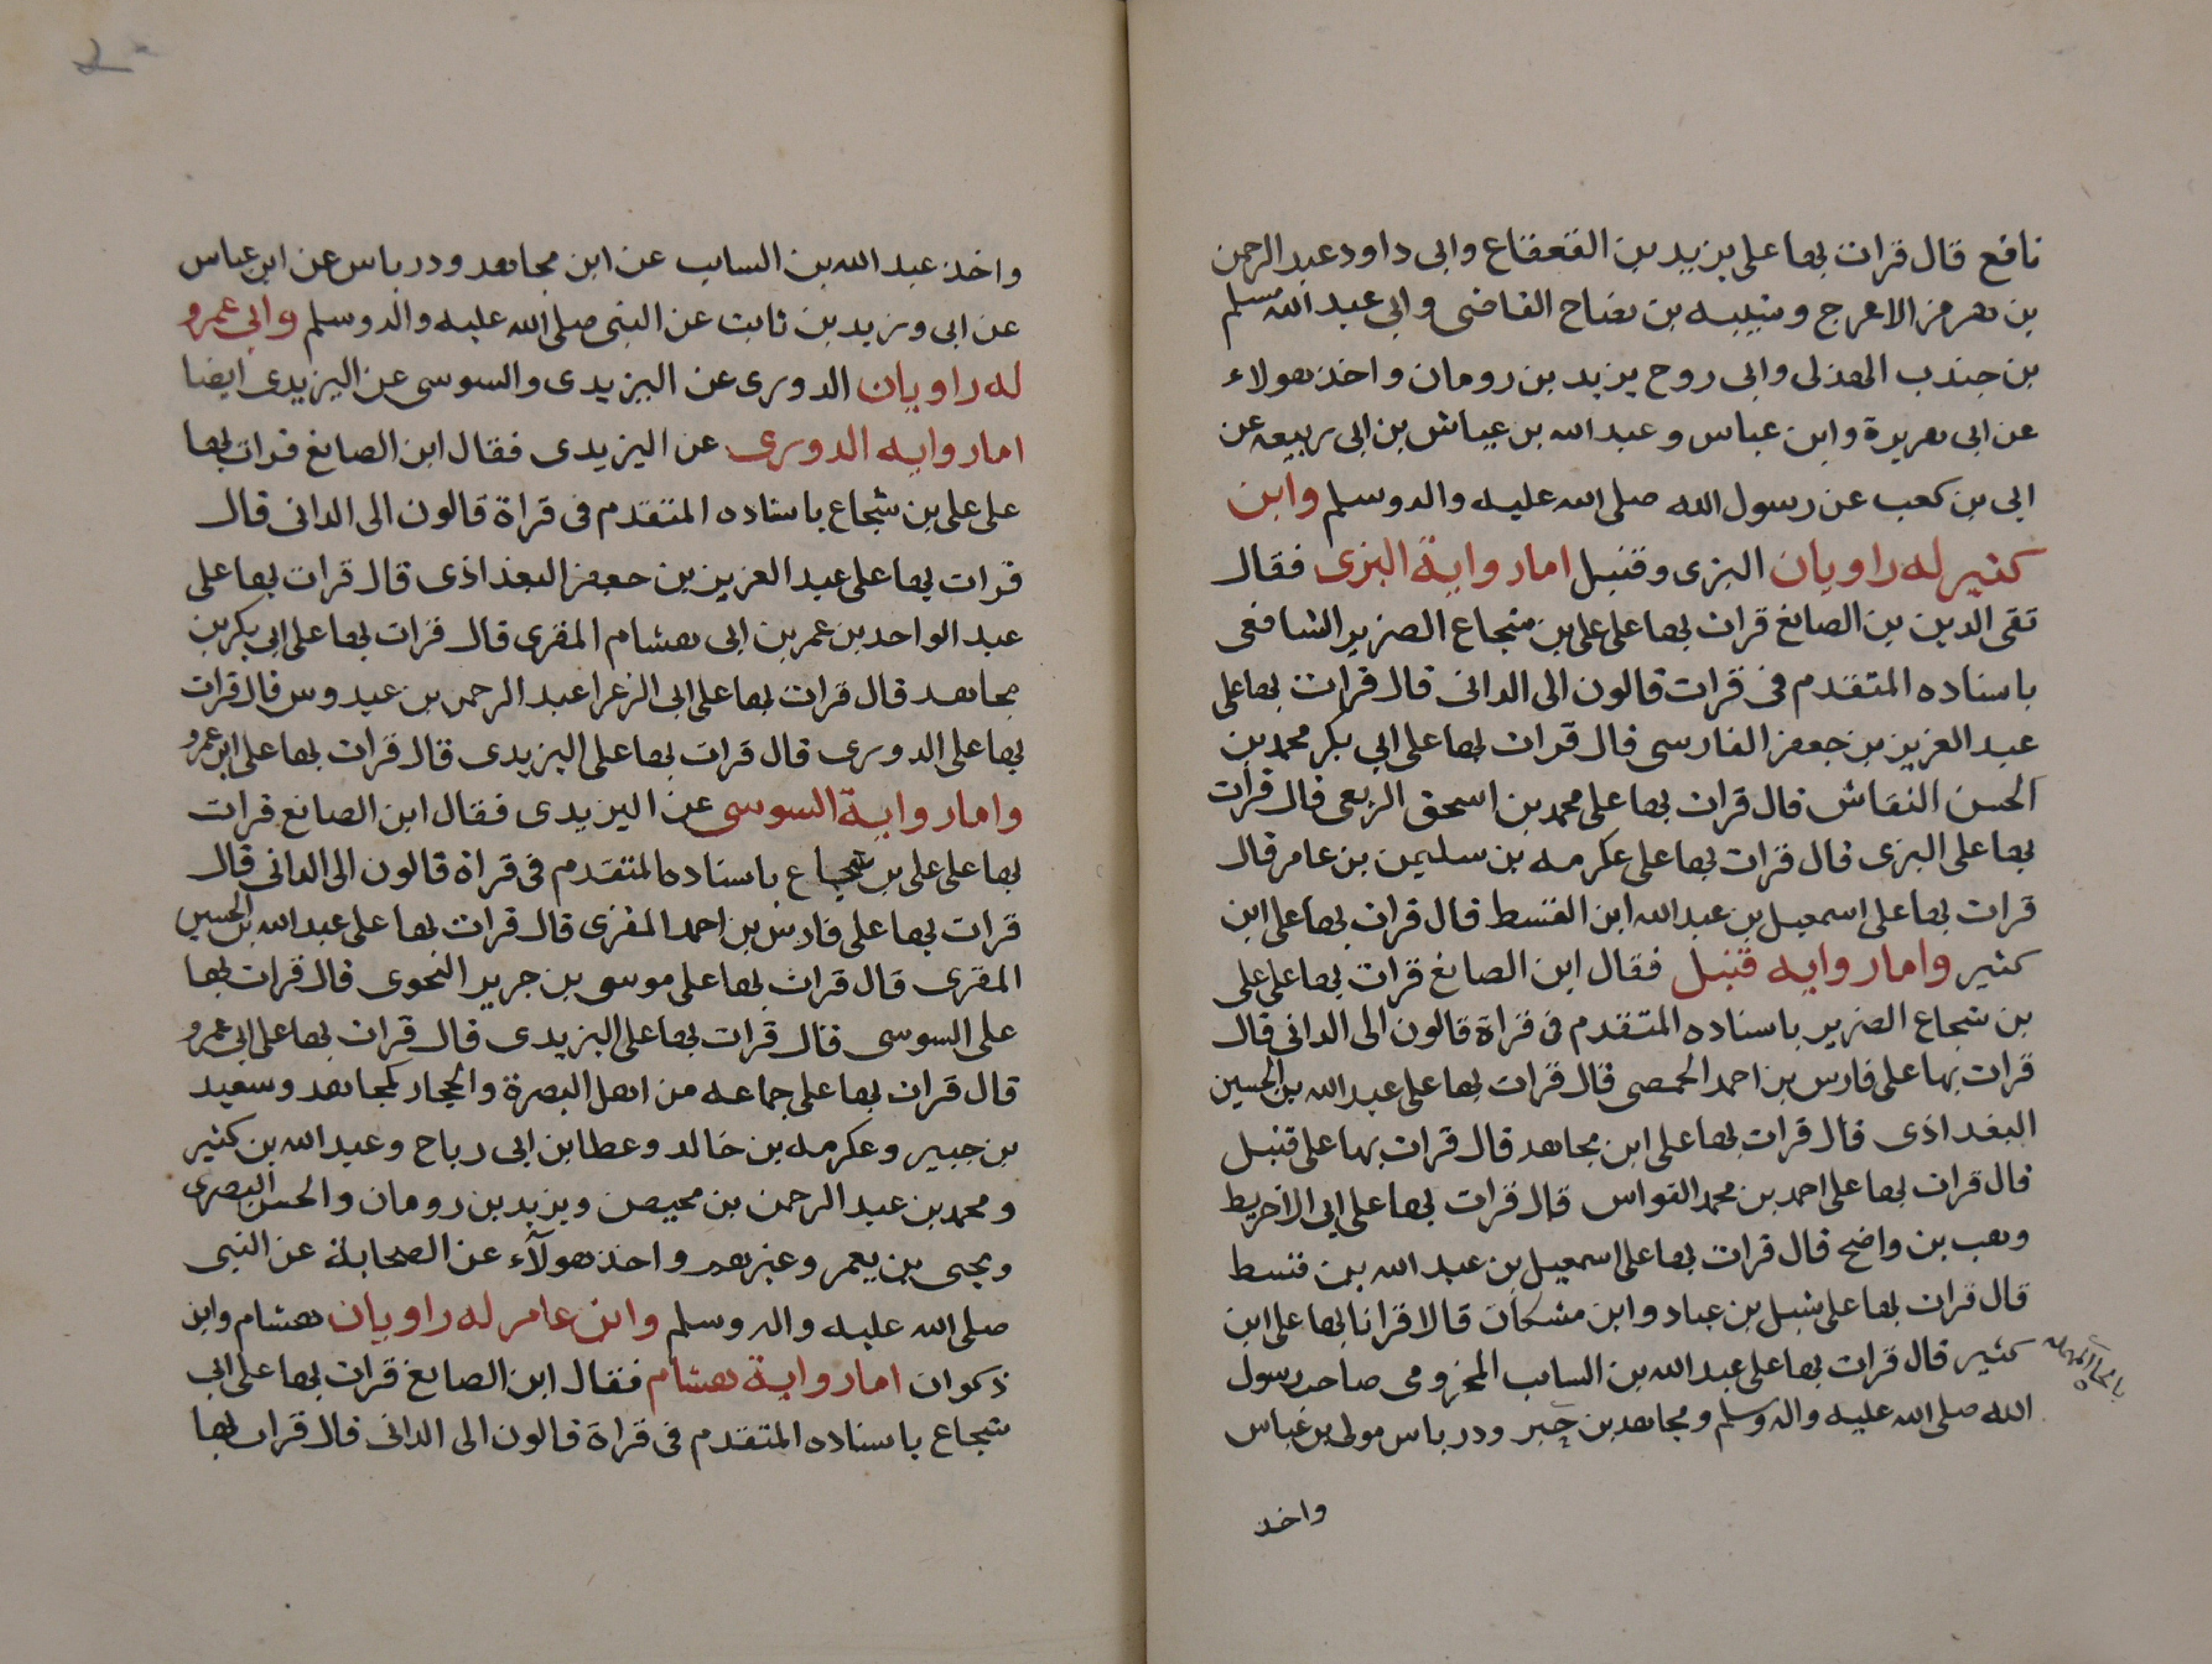 نافع قال قرات بها على يزيد بن القعقاع وابى داود عبد الرحمن
بن هرمز الاعرج وشيبه بن نصاح القاضى وابى عبد الله مسلم
بن جندب الهذلى وابى روح يزيد بن رومان واخذ هولاء
عن ابى هريرة وابن عباس وعبد الله بن عياش بن ابى ربيعه عن
ابى بن كعب عن رسول الله صلى الله عليه واله وسلم وابن
كثير له راويان البزى وقنبل اما رواية البزى فقال
تقى الدين بن الصائغ قرات بها على على بن شجاع الضرير الشافعى
باسناده المتقدم فى قرات قالون الى الدانى قال قرات بها على
عبد العزيز بن جعفر الفارسى قال قرات بها على ابي بكر محمد بن
الحسن النقاش قال قرات بها على محمد بن اسحق الربعى قال قرات
بها على البزى قال قرات بها على عكرمه بن سليمن بن عامر قال
قرات بها على اسمعيل بن عبد الله ابن القسط قال قرات بها على ابن
كثير واما روايه قنبل فقال ابن الصائغ قرات بها على على
بن شجاع الضرير باسناده المتقدم فى قراة قالون الى الدانى قال
قرات بها على فارس بن احمد الحمصى قال قرات بها على عبد الله بن الحسين
البغداذى قال قرات بها على ابن مجاهد قال قرات بها على قنبل
قال قرات بها على احمد بن محمد القواس قال قرات بها على ابى الاخريط
وهب بن واضح قال قرات بها على اسمعيل بن عبد الله بن قسط
قال قرات بها على شبل بن عباد وابن مشكان قالا قرانا بها على ابن
كثير قال قرات بها على عبد الله بن السايب المخزومى صاحب رسول
الله صلى الله عليه واله وسلم ومجاهد بن جبر ودرباس مولى بن عباس
واخذ
واخذ عبد الله بن السايب عن ابن مجاهد ودرباس عن ابن عباس
عن ابى وزيد بن ثابت عن النبى صلى الله عليه واله وسلم وابى عمرو
له راويان الدورى عن اليزيدى والسوسى عن اليزيدى ايضا
اما روايه الدورى عن اليزيدى فقال ابن الصائغ قرات بها
على على بن شجاع باسناده المتقدم فى قراة قالون الى الدانى قال
قرات بها على عبد العزيز بن جعفر البغداذى قال قرات بها على
عبد الواحد بن عمر بن ابى هشام المقرى قال قرات بها على ابي بكر بن
مجاهد قال قرات بها على ابى الزعرا عبد الرحمن بن عبدوس قال قرات
بها على الدورى قال قرات بها على اليزيدى قال قرات بها على ابى عمرو
واما رواية السوسى عن اليزيدى فقال ابن الصائغ قرات
بها على على بن شجاع باسناده المتقدم فى قراة قالون الى الدانى قال
قرات بها على فارس بن احمد المقرى قال قرات بها على عبد الله بن الحسين
المقرى قال قرات بها على موسى بن جرير النحوى قال قرات بها
على السوسى قال قرات بها على اليزيدى قال قرات بها على ابى عمرو
قال قرات بها على جماعه من اهل البصرة والحجاز كمجاهد وسعيد
بن جبير وعكرمه بن خالد وعطا بن ابى رباح وعبد الله بن كثير
ومحمد بن عبد الرحمن بن محيصن ويزيد بن رومان والحسن البصرى
ويحيى بن يعمر وغيرهم واخذ هولآء عن الصحابة عن النبى
صلى الله عليه واله وسلم وابن عامر له راويان هشام وابن
ذكوان اما رواية هشام فقال ابن الصائغ قرات بها على ابي
شجاع باسناده المتقدم فى قراة قالون الى الدانى قال قرات بها